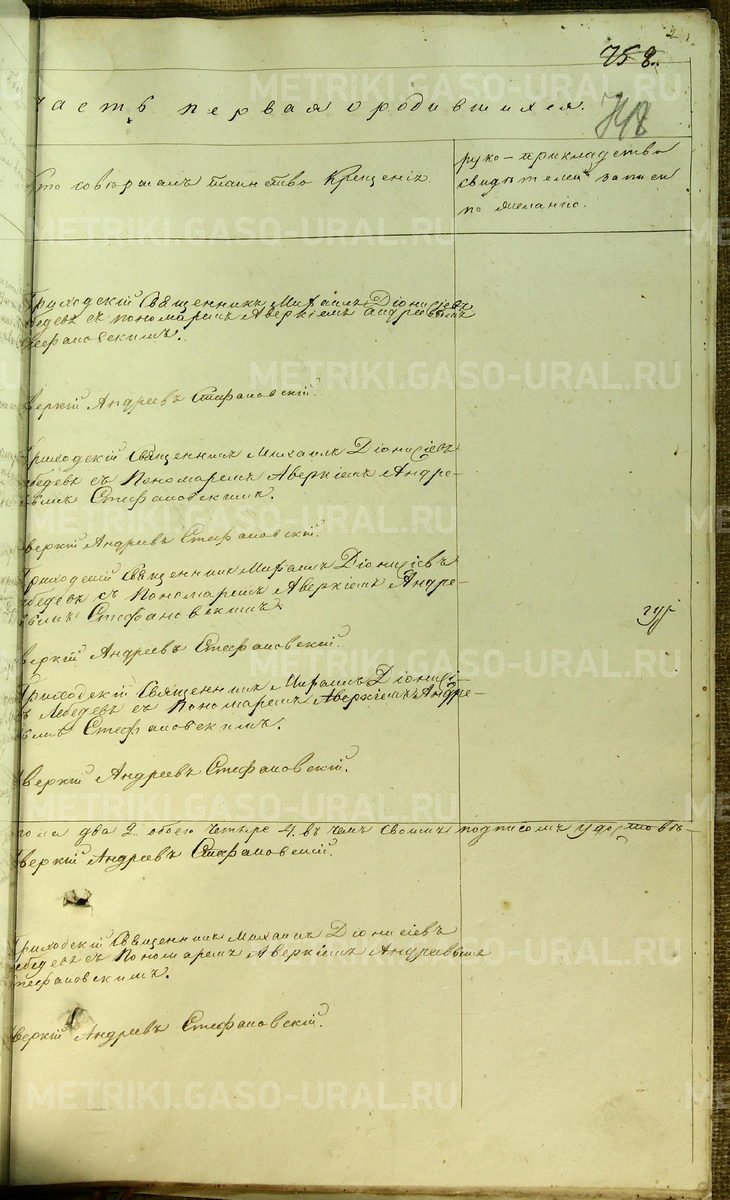 758.
часть первая о родившихся.
кто совершалъ таинство Крещенiя
руко-прикладство
свидѣтелей записи
по желанiю.
Приходскiй Священникъ Михаилъ Дiонисiевъ
Лебедевъ съ пономаремъ Аверкiемъ Андреевымъ
Стефановскимъ.
Аверкiй Андреевъ Стефановскiй.
Приходскiй Священникъ Михаилъ Дiонисiевъ
Лебедевъ съ Пономаремъ Аверкiемъ Андре-
вымъ Стефановскимъ.
Аверкiй Андреевъ Стефановскiй.
Приходскiй Священникъ Михаилъ Дiонисiевъ
Лебедевъ съ Пономаремъ Аверкiемъ Андре-
вымъ Стефановскимъ
Аверкiй Андреевъ Стефановскiй.
Приходскiй Священникъ Михаилъ Дiонисi-
въ Лебедевъ съ Пономаремъ Аверкiемъ Андре-
вымъ Стефановскимъ.
Аверкiй Андреевъ Стефановскiй.
пола два 2. обоего четыре 4. въ чемъ своимъ подписомъ удостовѣ-
Аверкiй Андреевъ Стефановскiй.
Приходскiй Священникъ Михаилъ Дiонисiевъ
Лебедевъ съ Пономаремъ Аверкiемъ Андреевымъ
Стефановскимъ.
Аверкiй Андреевъ Стефановскiй.
METRIKI.GASO-URAL.RU